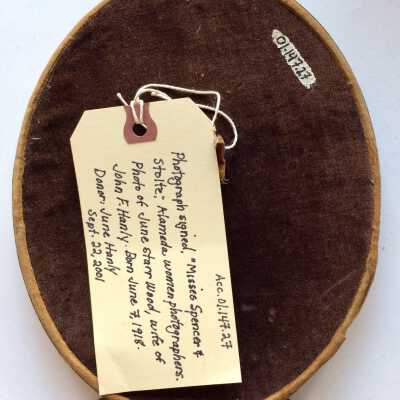 01.147.27
Acc. 01.147.27
Photograph signed, "Misses Spencer &
Stoltz." Alameda women photographers.
Photo of June Starr Wood, wife of
John F. Hanly. Born June 7, 1918.
Donor: June Hanly
Sept. 22, 2001